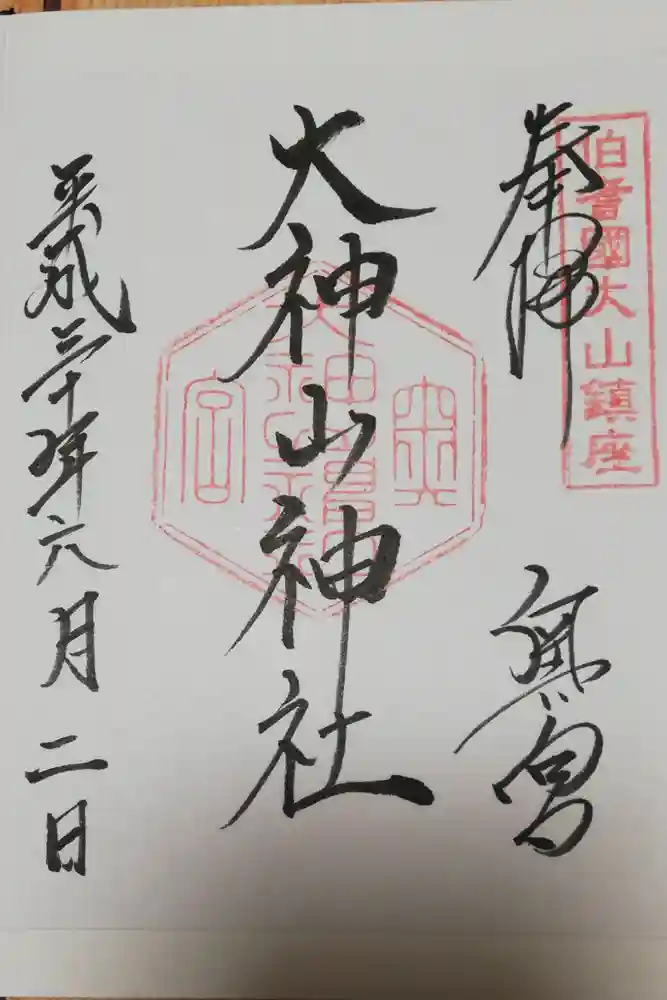 伯耆國大山鎮座
奉拝
奥宮
大神山神社
大神山神社
奥宮
平成三十年六月二日